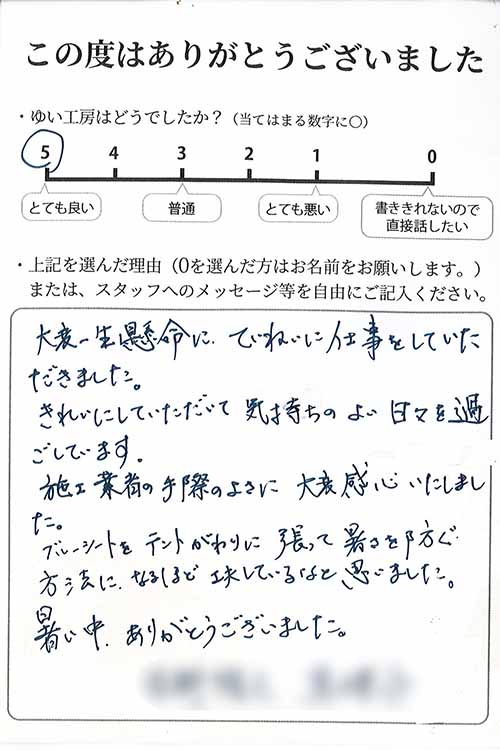 この度はありがとうございました
・ゆい工房はどうでしたか？（当てはまる数字に〇）
5 4 3 2 1 0
とても良い 普通 とても悪い 書ききれないので
直接話したい
・上記を選んだ理由（0を選んだ方はお名前をお願いします。）
または、スタッフへのメッセージ等を自由にご記入ください。
大変一生懸命に、ていねいに仕事をしていた
だきました。
きれいにしていただいて気持ちのよい日々を過
ごしています。
施工業者の手際のよさに大変感心いたしまし
た。
ブルーシートをテントがわりに張って暑さを防ぐ
方法に、なるほど工夫しているなと思いました。
暑い中、ありがとうございました。